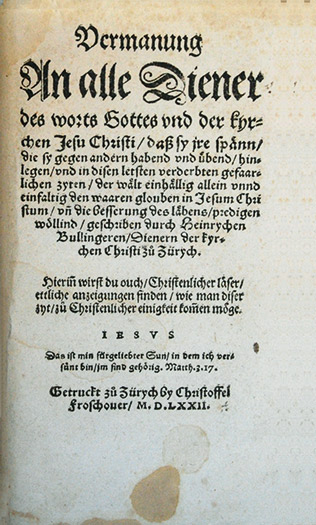 Vermanung
An alle Diener
des worts Gottes vnd der kyr-
chen Jesu Christi / daß sy jre spänn /
die sy gegen andern habend vnd übend / hin-
legen / vnd in disen letsten verderbten gefaar-
lichen zyten / der wält einhällig allein vnnd
einfaltig den waaren glouben in Jesum Chri
stum / vñ die besserung des läbens / predigen
wöllind / geschriben durch Heinrychen
Bullingeren / Dienern der kyr-
chen Christi zů Zürych.
Hierin̄ wirst du ouch / Christenlicher läser /
ettliche anzeigungen finden / wie man diser
zyt / zů Christenlicher einigkeit kom̄en möge.
IESVS
Das ist min fürgeliebter Sun / in dem ich ver-
sünt bin / jm sind gehörig. Matth.3.17.
Getruckt zů Zürych by Christoffel
Froschouer / M. D. LXXII.